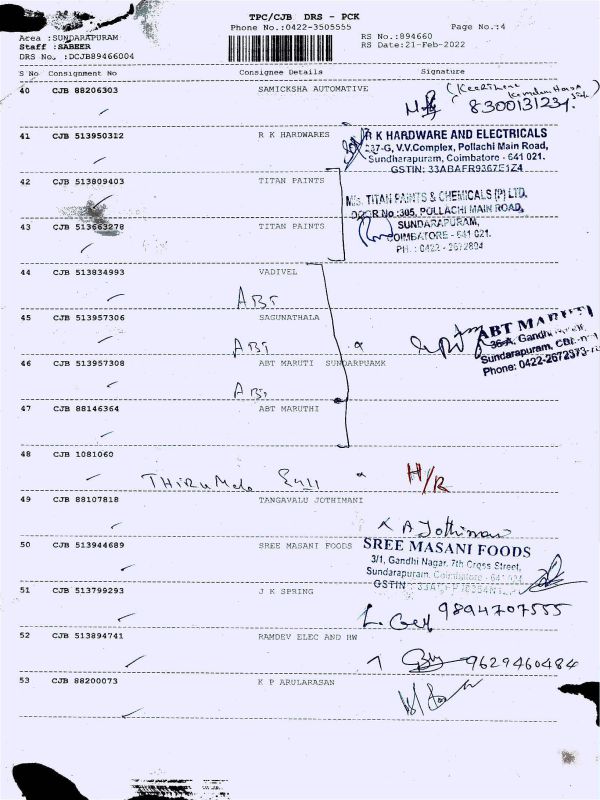 TPC/CJB DRS - PCK
Phone No.:0422-3505555
Page No.:4
Area :SUNDARAPURAM
Staff :SABEER
DRS No. :DCJB89466004
RS No.:894660
RS Date:21-Feb-2022
S No Consignment No Consignee Details Signature
40 CJB 88206303 SAMICKSHA AUTOMATIVE
8300131234.
41 CJB 513950312 R K HARDWARES
R K HARDWARE AND ELECTRICALS
237-G, V.V.Complex, Pollachi Main Road,
Sundharapuram, Coimbatore - 641 021.
GSTIN: 33ABAFR9367E1Z4
42 CJB 513809403 TITAN PAINTS
M/s. TITAN PAINTS & CHEMICALS (P) LTD.
DOOR No :305, POLLACHI MAIN ROAD,
43 CJB 513663278 TITAN PAINTS
SUNDARAPURAM,
COIMBATORE - 641 021.
PH. : 0422 - 2672894
44 CJB 513834993 VADIVEL
ABT
45 CJB 513957306 SAGUNATHALA
ABT
ABT MARUTI
36-A, Gandhi
Sundarapuram,
Phone: 0422-2672373
46 CJB 513957308 ABT MARUTI SUNDARPUAMK
ABT
47 CJB 88146364 ABT MARUTHI
48 CJB 1081060
H/R
49 CJB 88107818 TANGAVALU JOTHIMANI
50 CJB 513944689 SREE MASANI FOODS
SREE MASANI FOODS
3/1, Gandhi Nagar, 7th Cross Street,
Sundarapuram, Coimbatore - 641 024
GSTIN
51 CJB 513799293 J K SPRING
9894707555
52 CJB 513894741 RAMDEV ELEC AND HW
9629460484
53 CJB 88200073 K P ARULARASAN